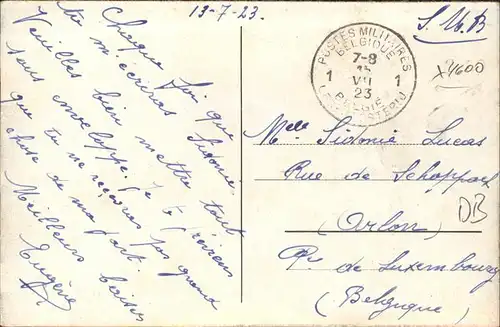 13-7-23.
Chaque fois que
tu m'écriras Sidonie,
Veuilles bien mettre tout
sous enveloppe. Je te préviens
que tu ne recevras pas grand
chose de ma part.
Meilleurs baisers
Eugène
S. M. B
POSTES MILITAIRES
BELGIQUE
7-8
VII
1 1
23
BELGIË
LEGERPOSTERIJ
x4600
Melle Sidonie Lucas
Rue de Schoppach
DB
(Arlon)
Pce de Luxembourg
(Belgique)